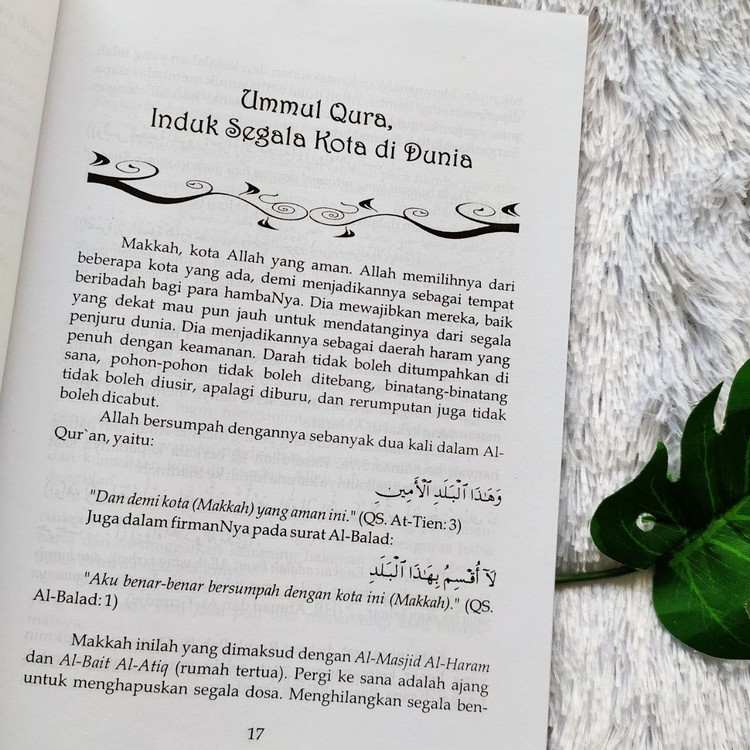 Ummul Qura,
Induk Segala Kota di Dunia
Makkah, kota Allah yang aman. Allah memilihnya dari
beberapa kota yang ada, demi menjadikannya sebagai tempat
beribadah bagi para hambaNya. Dia mewajibkan mereka, baik
yang dekat mau pun jauh untuk mendatanginya dari segala
penjuru dunia. Dia menjadikannya sebagai daerah haram yang
penuh dengan keamanan. Darah tidak boleh ditumpahkan di
sana, pohon-pohon tidak boleh ditebang, binatang-binatang
tidak boleh diusir, apalagi diburu, dan rerumputan juga tidak
boleh dicabut.
Allah bersumpah dengannya sebanyak dua kali dalam Al-
Qur`an, yaitu:
وَهَٰذَا ٱلْبَلَدِ ٱلْأَمِينِ
"Dan demi kota (Makkah) yang aman ini." (QS. At-Tien: 3)
Juga dalam firmanNya pada surat Al-Balad:
لَآ أُقْسِمُ بِهَٰذَا ٱلْبَلَدِ
"Aku benar-benar bersumpah dengan kota ini (Makkah)." (QS.
Al-Balad: 1)
Makkah inilah yang dimaksud dengan Al-Masjid Al-Haram
dan Al-Bait Al-Atiq (rumah tertua). Pergi ke sana adalah ajang
untuk menghapuskan segala dosa. Menghilangkan segala ben-
17